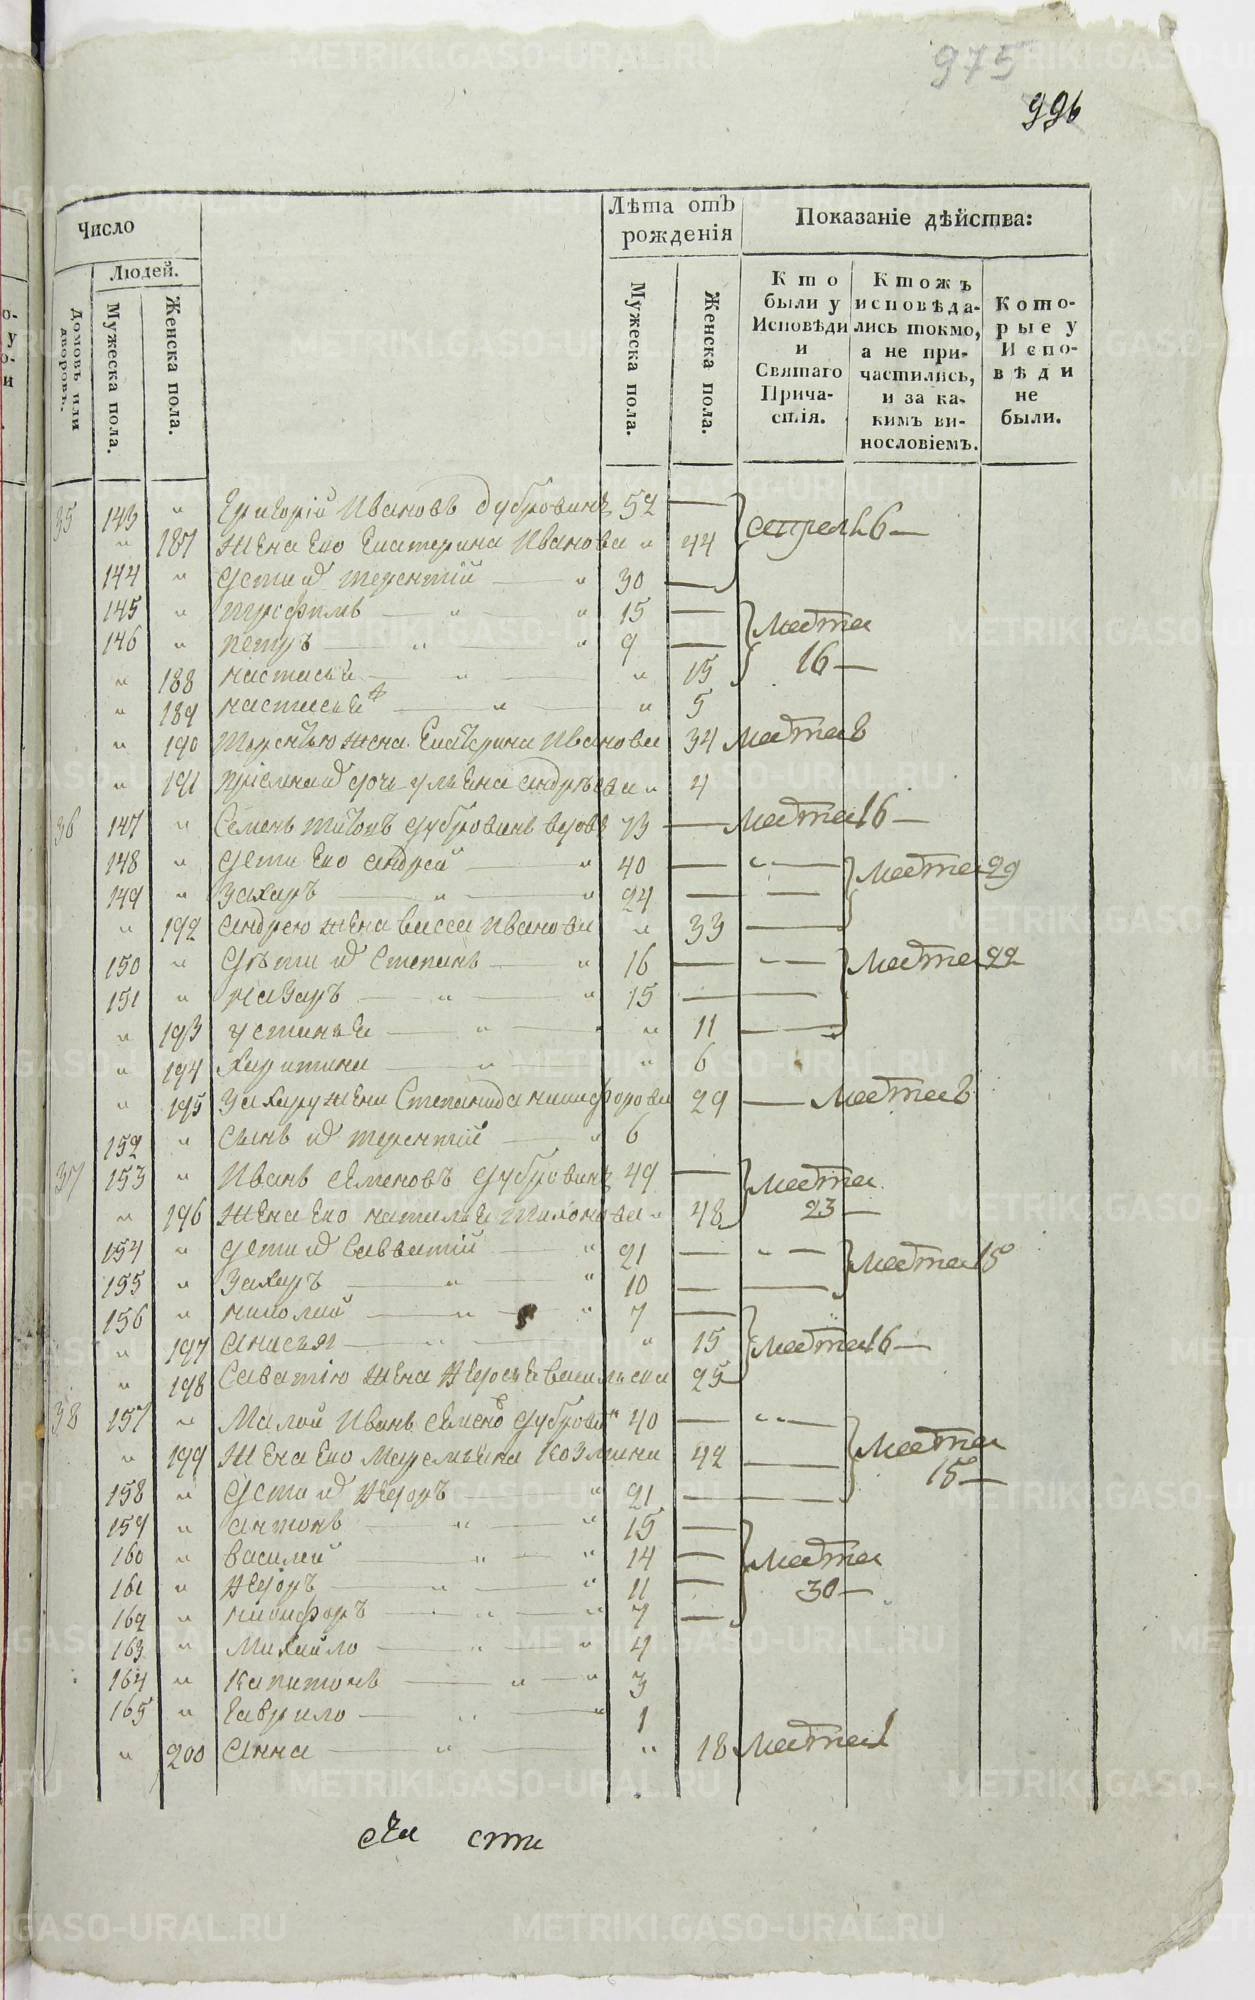 975
996
Число
Лѣта отъ рожденія
Показаніе дѣйства:
Людей.
Домовъ или дворовъ.
Мужеска пола.
Женска пола.
Мужеска пола.
Женска пола.
Кто были у Исповѣди и Святаго Причастія.
Ктожъ исповѣдались токмо, а не причастились, и за какимъ винословіемъ.
Которые у Исповѣди не были.
35 143 " Григорій Ивановъ дубровинъ 52 —
" 187 жена Его Екатерина Иванова " 44 апреля 6 —
144 " дети ихъ терентій — " 30 —
145 " трофимъ — " — " 15 —
146 " петръ — " — " 9 — марта
" 188 настасья — " — " 15 16 —
" 189 настасья — " — " 5
" 190 терентью жена Екатерина Иванова 34 марта 8
" 191 дочь ульяна андрѣева " 4
36 147 " Семенъ титовъ дубровинъ вдовъ 73 — марта 16 —
148 " дети Его андрей — " 40 — " —
149 " Захаръ — " — " 24 — " — марта 29
" 192 андрею жена васса Иванова " 33 —
150 " дѣти ихъ Степанъ — " 16 — " — марта 22
151 " назаръ — " — " 15 — —
" 193 устинья — " — " 11 —
" 194 харитина — " — " 6
" 195 Захару жена Степанида никифорова 29 — марта 8
152 " сынъ ихъ терентій — " 6
37 153 " Иванъ семеновъ дубровинъ 49 — марта
" 196 жена Его наталья " 48 23 —
154 " дети ихъ савватій — " 21 — " —
155 " Захаръ — " — " 10 — — марта 15
156 " николай — " — " 7 —
" 197 анисья — " — " 15 марта 16 —
" 198 Саватію жена федосья васильева 25
38 157 " Малой Иванъ семено дуброви 40 — " —
" 199 жена Его маремьяна козмина 42 — марта
158 " дети ихъ федоръ — " 21 — — 15 —
159 " антонъ — " — " 15 —
160 " василей — " — " 14 — марта
161 " федоръ — " — " 11 — 30 —
162 " никифоръ — " — " 7 —
163 " михайло — " — " 4
164 " капитонъ — " — " 3
165 " гаврило — " — " 1
" 200 анна — " — " 18 марта 1